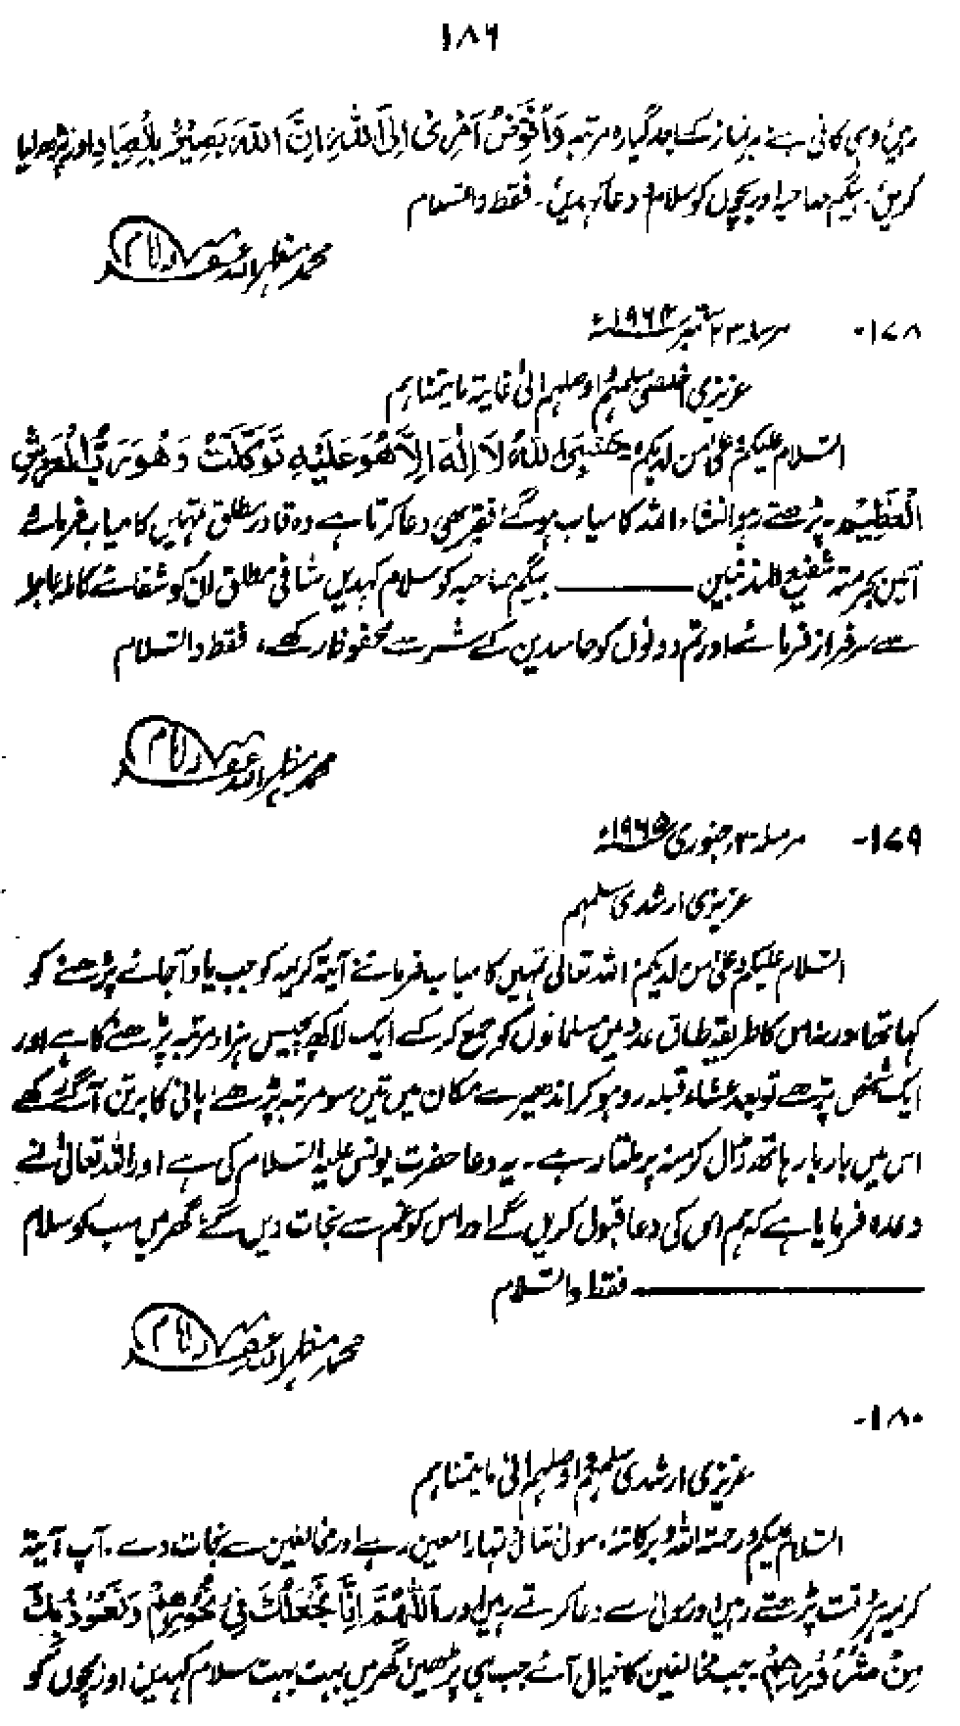 ۱۸۶
رہیں وہی کافی ہے ہر نماز کے بعد گیارہ مرتبہ وَاُفَوِّضُ اَمْرِیْ اِلَی اللّٰہِ اِنَّ اللّٰہَ بَصِیْرٌ بِالْعِبَادِ اور پڑھ لیا
کریں۔ بیگم صاحبہ اور بچوں کو سلام دعا کہدیں۔ فقط والسلام
محمد مظہر اللہ غفرلہ امام
۱۷۸- مرسلہ ۲۳ ستمبر ۱۹۶۴ء
عزیزی اخلصی سلمہم اوصلہم الیٰ غایۃ مایتمناہم
السلام علیکم وعلیٰ من لدیکم: حَسْبِیَ اللّٰہُ لَا اِلٰہَ اِلَّا ھُوَ عَلَیْہِ تَوَکَّلْتُ وَھُوَ رَبُّ الْعَرْشِ
الْعَظِیْمِ۔ پڑھتے رہو انشاء اللہ کامیاب ہوگے فقیر بھی دعا کرتا ہے وہ قادر مطلق تمہیں کامیاب فرمائے
آمین بحرمتہ شفیع المذنبین ـــــــــــ بیگم صاحبہ کو سلام کہدیں شافی مطلق ان کو شفائے کاملہ عاجلہ
سے سرفراز فرمائے اور تم دونوں کو حاسدین کے شر سے محفوظ رکھے، فقط والسلام
محمد مظہر اللہ غفرلہ امام
۱۷۹- مرسلہ ۳ جنوری ۱۹۶۵ء
عزیزی ارشدی سلمہم
السلام علیکم وعلیٰ من لدیکم: اللہ تعالیٰ تمہیں کامیاب فرمائے آیۃ کریمہ کو جب یاد آجائے پڑھنے کو
کہا تھا اور خاص کا طریقہ طاق عدد میں مسلمانوں کو جمع کر کے ایک لاکھ پچیس ہزار مرتبہ پڑھنے کا ہے اور
ایک شخص پڑھے تو بعد عشاء قبلہ رو ہو کر اندھیرے مکان میں تین سو مرتبہ پڑھے پانی کا برتن آگے رکھے
اس میں بار بار ہاتھ ڈال کر منہ پر ملتا رہے۔ یہ دعا حضرت یونس علیہ السلام کی ہے اور اللہ تعالیٰ نے
وعدہ فرمایا ہے کہ ہم اس کی دعا قبول کریں گے اور اس کو غم سے نجات دیں گے؛ گھر میں سب کو سلام
ـــــــــــ فقط والسلام
محمد مظہر اللہ غفرلہ امام
۱۸۰-
عزیزی ارشدی سلمہم اوصلہم الیٰ مایتمناہم
السلام علیکم ورحمتہ اللہ وبرکاتہٗ، مولیٰ تعالیٰ تمہارا معین رہے اور مخالفین سے نجات دے۔ آپ آیتہ
کریمہ ہر وقت پڑھتے رہیں اور مولیٰ سے دعا کرتے رہیں اور اَللّٰھُمَّ اِنَّا نَجْعَلُکَ فِیْ نُحُوْرِھِمْ وَنَعُوْذُ بِکَ
مِنْ شُرُوْرِھِمْ۔ جب مخالفین کا خیال آئے جب ہی پڑھیں گھر میں بہت بہت سلام کہدیں اور بچوں کو